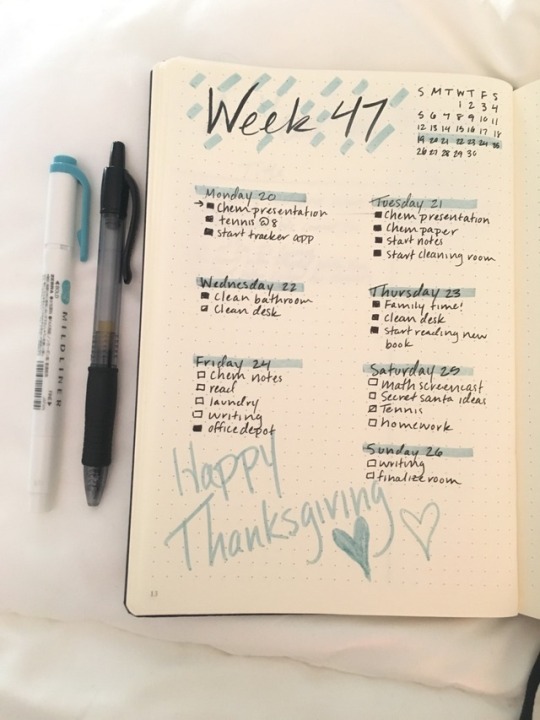 Week 47
S M T W T F S
1 2 3 4
5 6 7 8 9 10 11
12 13 14 15 16 17 18
19 20 21 22 23 24 25
26 27 28 29 30
Monday 20
→ Chem presentation
tennis @8
start tracker app
Tuesday 21
Chem presentation
Chem paper
start notes
start cleaning room
Wednesday 22
Clean bathroom
Clean desk
Thursday 23
Family time!
Clean desk
start reading new
book
Friday 24
Chem notes
read
laundry
writing
office depot
Saturday 25
Math screencast
Secret santa ideas
Tennis
homework
Sunday 26
writing
finalize room
Happy
Thanksgiving
13
MILDLINER